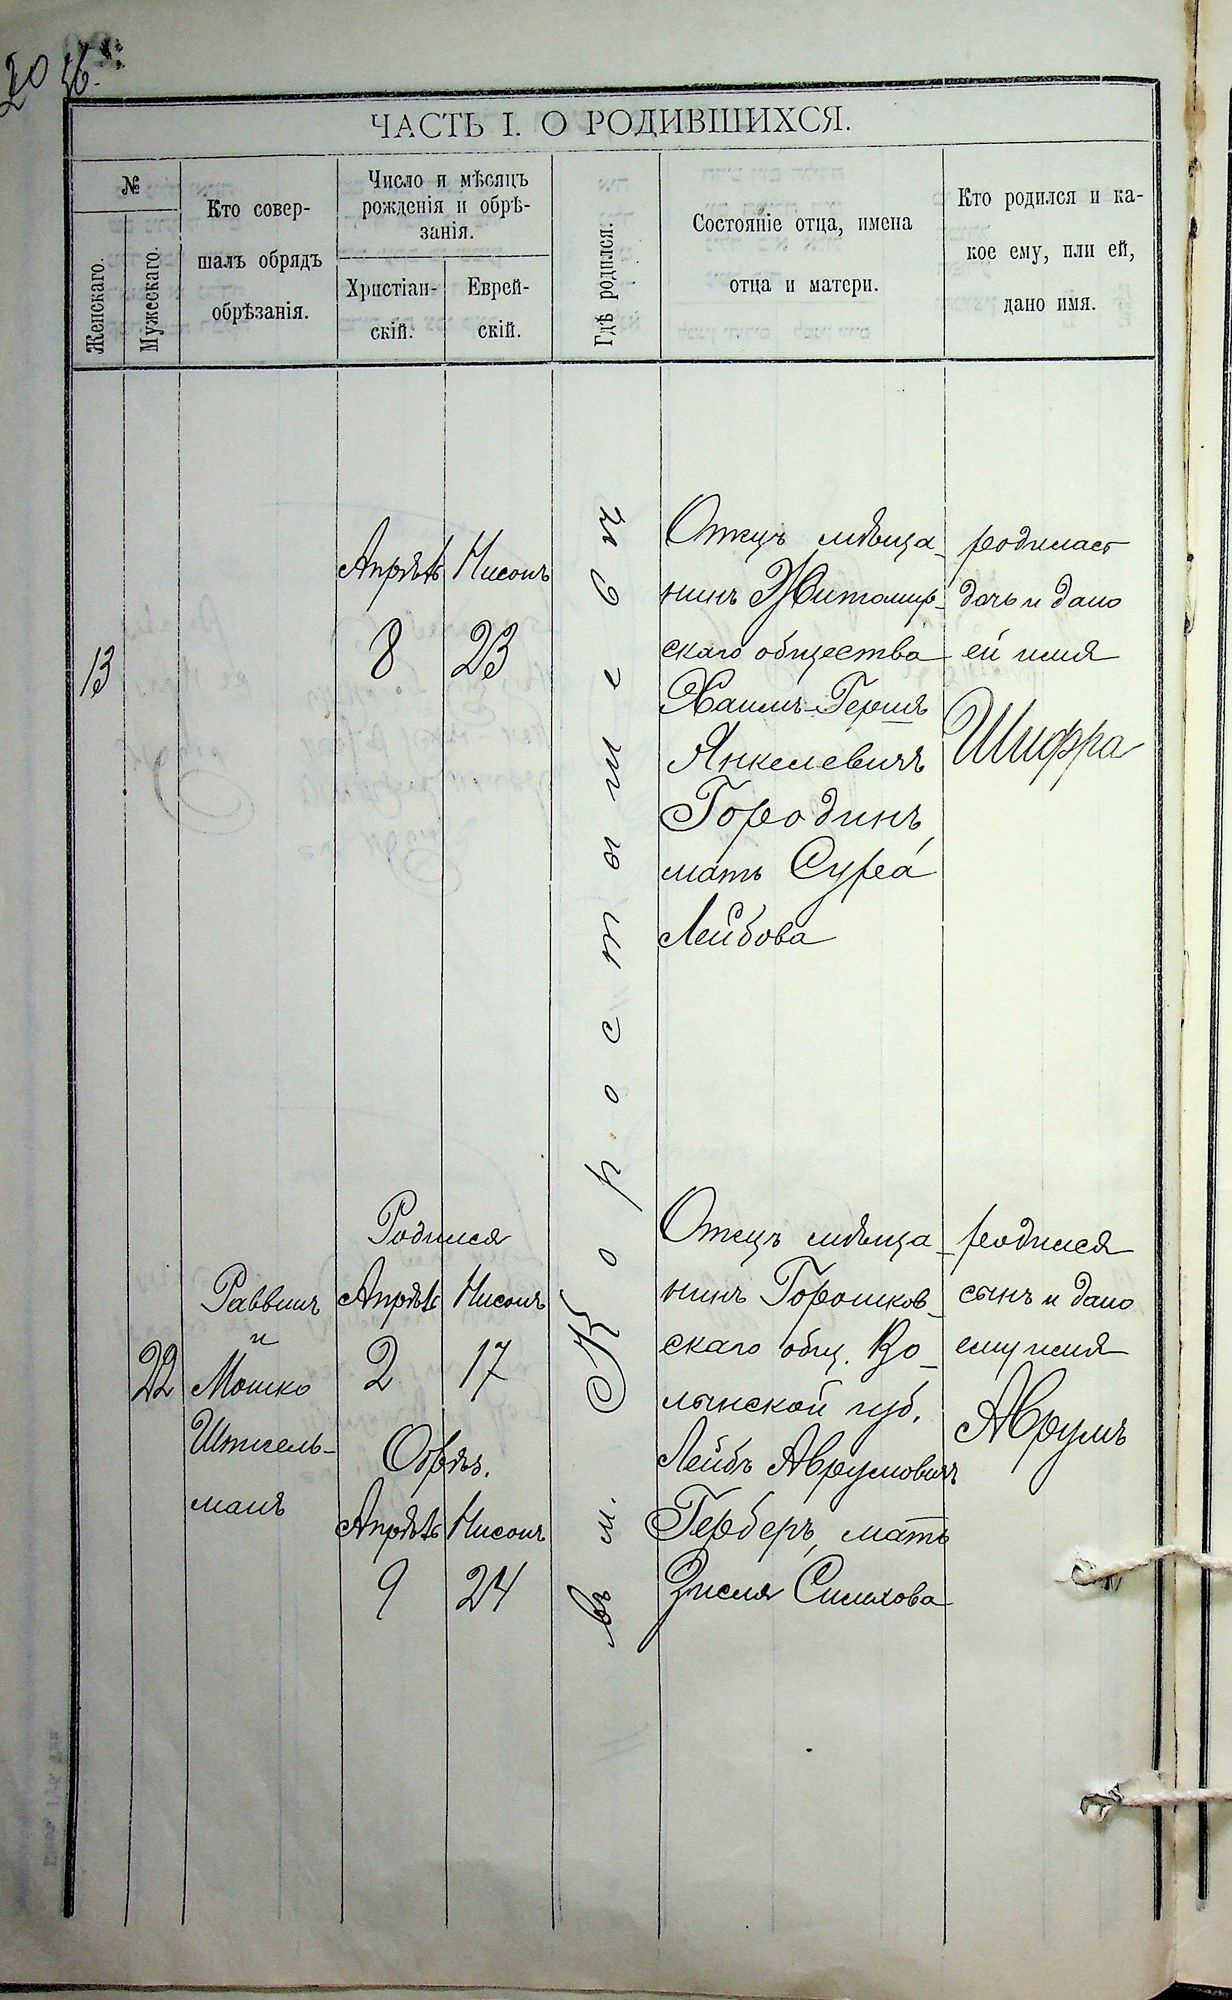 20 об.
ЧАСТЬ I. О РОДИВШИХСЯ.
№
Женскаго.
Мужескаго.
Кто совер-
шалъ обрядъ
обрѣзанія.
Число и мѣсяцъ
рожденія и обрѣ-
занія.
Христіан-
скій.
Еврей-
скій.
Гдѣ родился.
Состояніе отца, имена
отца и матери.
Кто родился и ка-
кое ему, или ей,
дано имя.
въ м. Коростышевѣ
13
Апрѣль
8
Нисонъ
23
Отецъ мѣща-
нинъ Житомир-
скаго общества
Хаимъ-Гершъ
Янкелевичъ
Городинъ,
мать Сура
Лейбова
родилась
дочь и дано
ей имя
Шифра
22
Раввинъ
и
Мошко
Штисель-
манъ
Родился
Апрѣль Нисонъ
2 17
Обрѣз.
Апрѣль Нисонъ
9 24
Отецъ мѣща-
нинъ Горошков-
скаго общ. Во-
лынской губ.
Лейбъ Аврумовичъ
Герберъ, мать
Зисля Симхова
родился
сынъ и дано
ему имя
Аврумъ